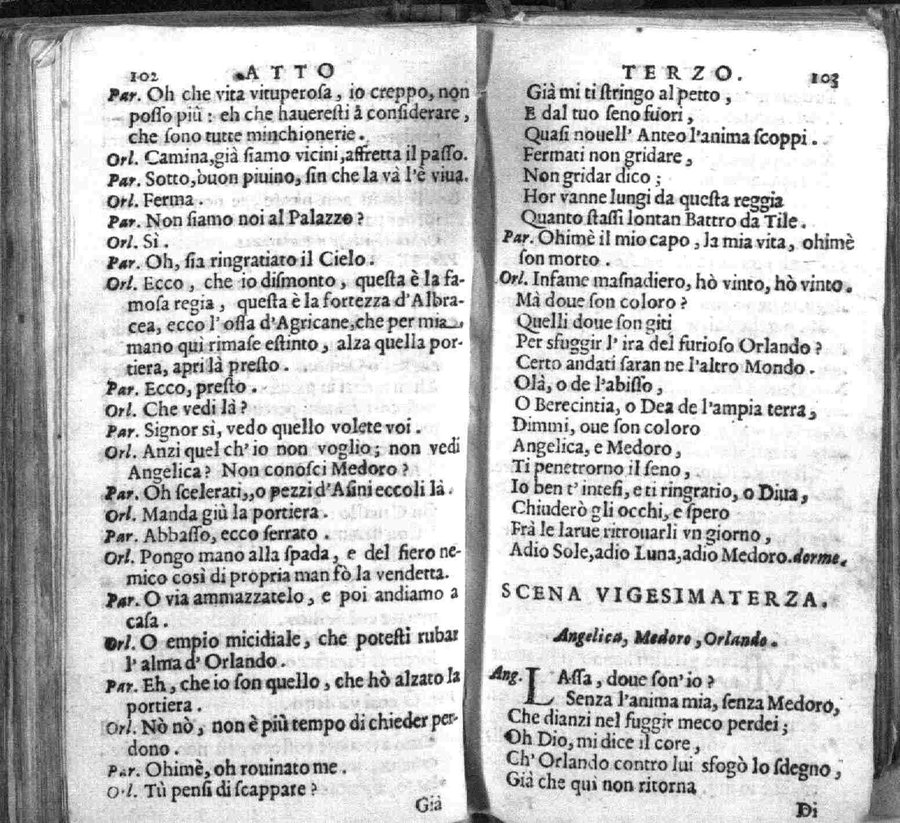 102 ATTO
Par. Oh che vita vituperosa, io creppo, non
posso più: eh che haueresti à considerare,
che sono tutte minchionerie.
Orl. Camina, già siamo vicini, affretta il passo.
Par. Sotto, buon piuino, sin che la và l'è viua.
Orl. Ferma.
Par. Non siamo noi al Palazzo?
Orl. Sì.
Par. Oh, sia ringratiato il Cielo.
Orl. Ecco, che io dismonto, questa è la fa-
mosa regia, questa è la fortezza d'Albra-
cea, ecco l'ossa d'Agricane, che per mia
mano qui rimase estinto, alza quella por-
tiera, apri là presto.
Par. Ecco, presto.
Orl. Che vedi là?
Par. Signor sì, vedo quello volete voi.
Orl. Anzi quel ch'io non voglio; non vedi
Angelica? Non conosci Medoro?
Par. Oh scelerati, o pezzi d'Asini eccoli là.
Orl. Manda giù la portiera.
Par. Abbasso, ecco serrato.
Orl. Pongo mano alla spada, e del fiero ne-
mico così di propria man fò la vendetta.
Par. O via ammazzatelo, e poi andiamo a
casa.
Orl. O empio micidiale, che potesti rubar
l'alma d'Orlando.
Par. Eh, che io son quello, che hò alzato la
portiera.
Orl. Nò nò, non è più tempo di chieder per-
dono.
Par. Ohimè, oh rouinato me.
Orl. Tù pensi di scappare?
Già
TERZO. 103
Già mi ti stringo al petto,
E dal tuo seno fuori,
Quasi nouell' Anteo l'anima scoppi.
Fermati non gridare,
Non gridar dico;
Hor vanne lungi da questa reggia
Quanto stassi lontan Battro da Tile.
Par. Ohimè il mio capo, la mia vita, ohimè
son morto.
Orl. Infame masnadiero, hò vinto, hò vinto.
Mà doue son coloro?
Quelli doue son giti
Per sfuggir l'ira del furioso Orlando?
Certo andati saran ne l'altro Mondo.
Olà, o de l'abisso,
O Berecintia, o Dea de l'ampia terra,
Dimmi, oue son coloro
Angelica, e Medoro,
Ti penetrorno il seno,
Io ben t'intesi, e ti ringratio, o Diua,
Chiuderò gli occhi, e spero
Frà le larue ritrouarli vn giorno,
Adio Sole, adio Luna, adio Medoro. dorme.
SCENA VIGESIMATERZA.
Angelica, Medoro, Orlando.
Ang. LAssa, doue son'io?
Senza l'anima mia, senza Medoro,
Che dianzi nel fuggir meco perdei;
Oh Dio, mi dice il core,
Ch'Orlando contro lui sfogò lo sdegno,
Già che qui non ritorna
Di